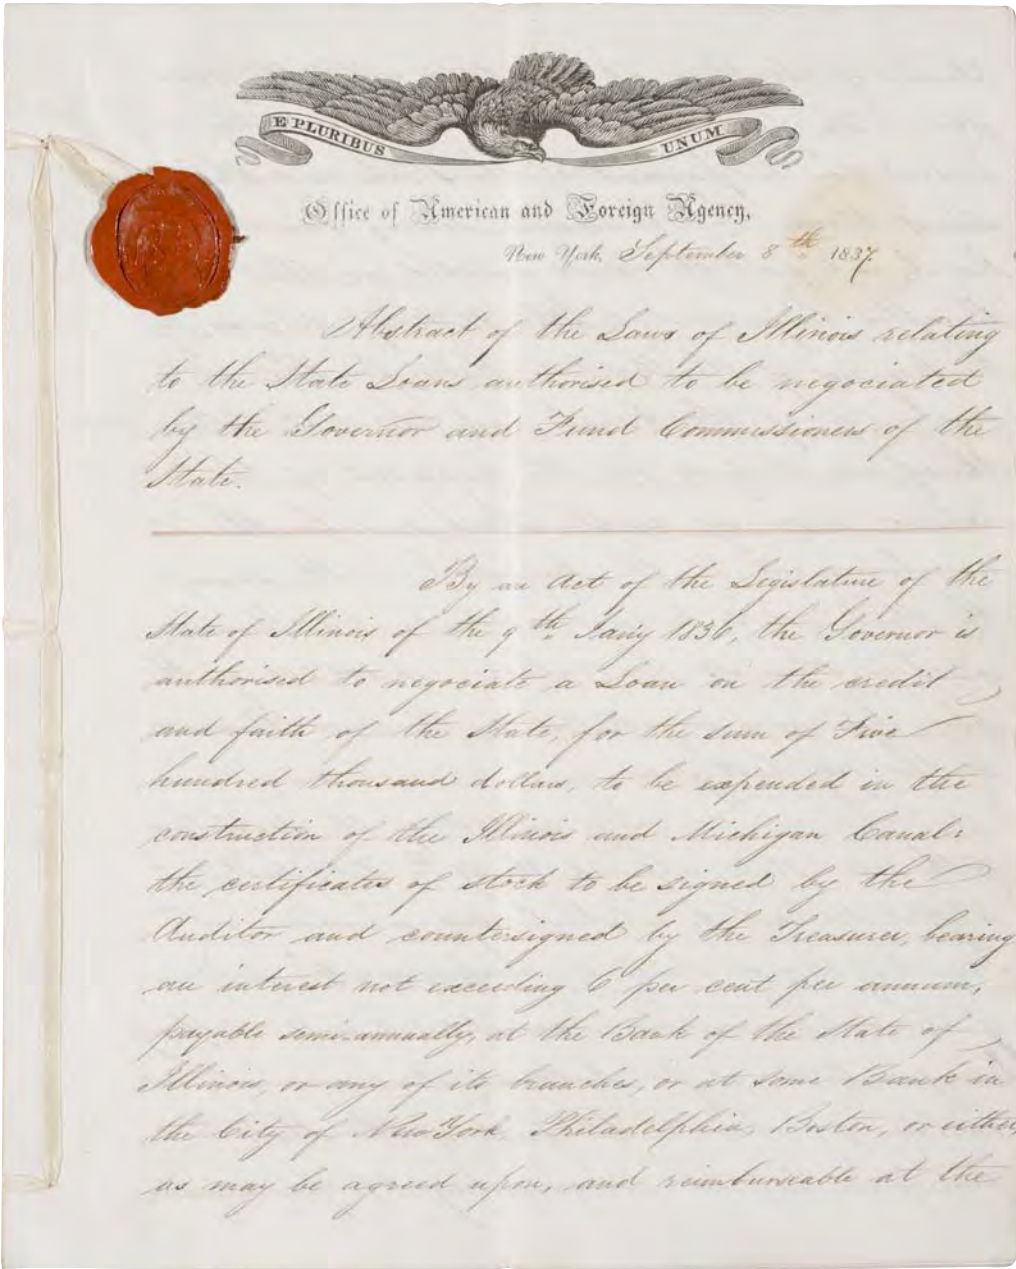 E PLURIBUS UNUM
Office of American and Foreign Agency,
New York, September 8th 1837.
Abstract of the Laws of Illinois relating
to the State Loans authorised to be negociated
by the Governor and Fund Commissioners of the
State.
By an Act of the Legislature of the
State of Illinois of the 9th Jan'y 1836, the Governor is
authorised to negociate a Loan on the credit
and faith of the State, for the sum of Five
hundred thousand dollars, to be expended in the
construction of the Illinois and Michigan Canal:
the certificates of stock to be signed by the
Auditor and countersigned by the Treasurer, bearing
an interest not exceeding 6 per cent per annum,
payable semi-annually, at the Bank of the State of
Illinois, or any of its branches, or at some Bank in
the City of New York, Philadelphia, Boston, or either,
as may be agreed upon, and reimburseable at the